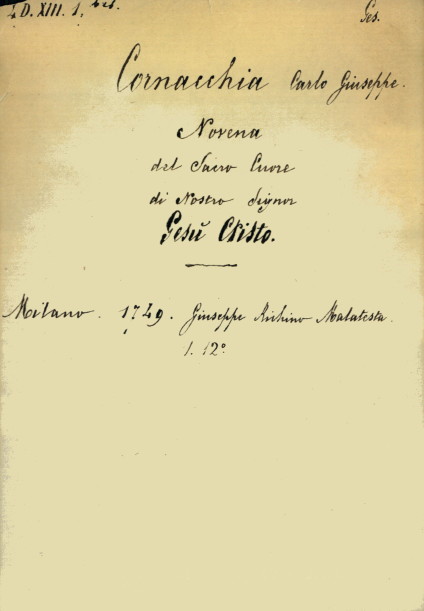 4 D. XIII. 1, bis.
Ges.
Cornacchia Carlo Giuseppe.
Novena
del Sacro Cuore
di Nostro Signor
Gesù Cristo.
Milano. 1749. Giuseppe Richino Malatesta.
1. 12°